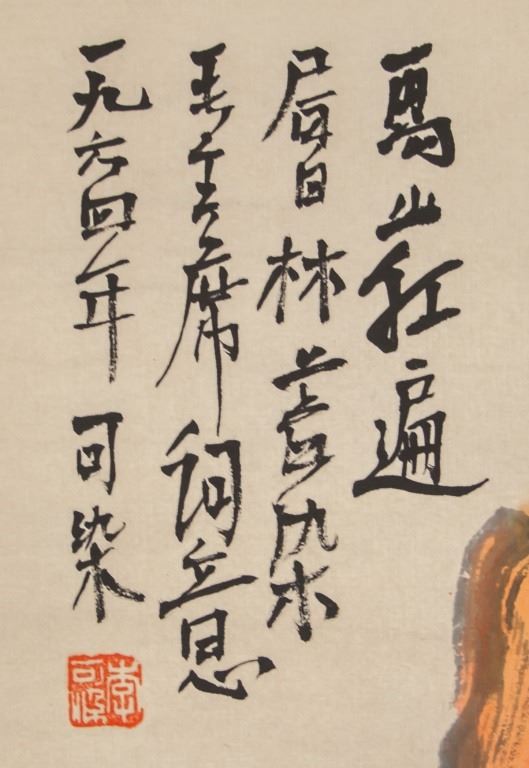 萬山紅遍
層林盡染
毛主席詞意
一九六四年 可染
李可染